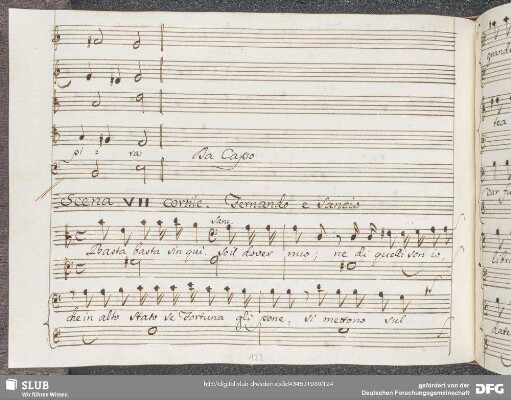 pi ra Da Capo
Scena VII Cortile. Fernando e Sancio
Sanc:
Basta basta sin qui. So il dover mio; ne di quelli son io,
che in alto stato se Fortuna gli pone, si mettono sul
grand
tea
Dar fu
libri
date
122
SLUB
Wir führen Wissen.
gefördert von der
Deutschen Forschungsgemeinschaft
DFG